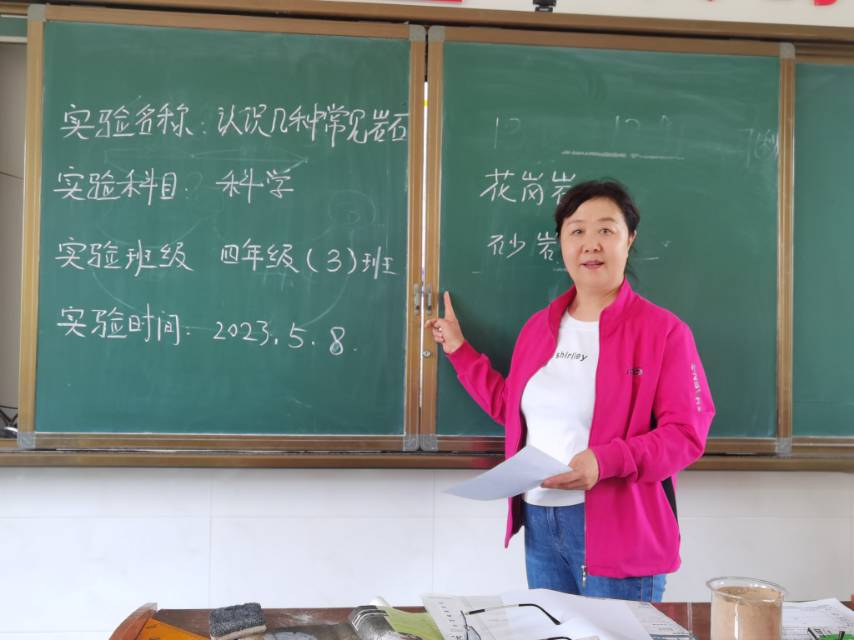 实验名称：认识几种常见岩石
实验科目： 科学
实验班级 四年级（3）班
实验时间： 2023.5.8.
花岗岩
砂岩
shirley